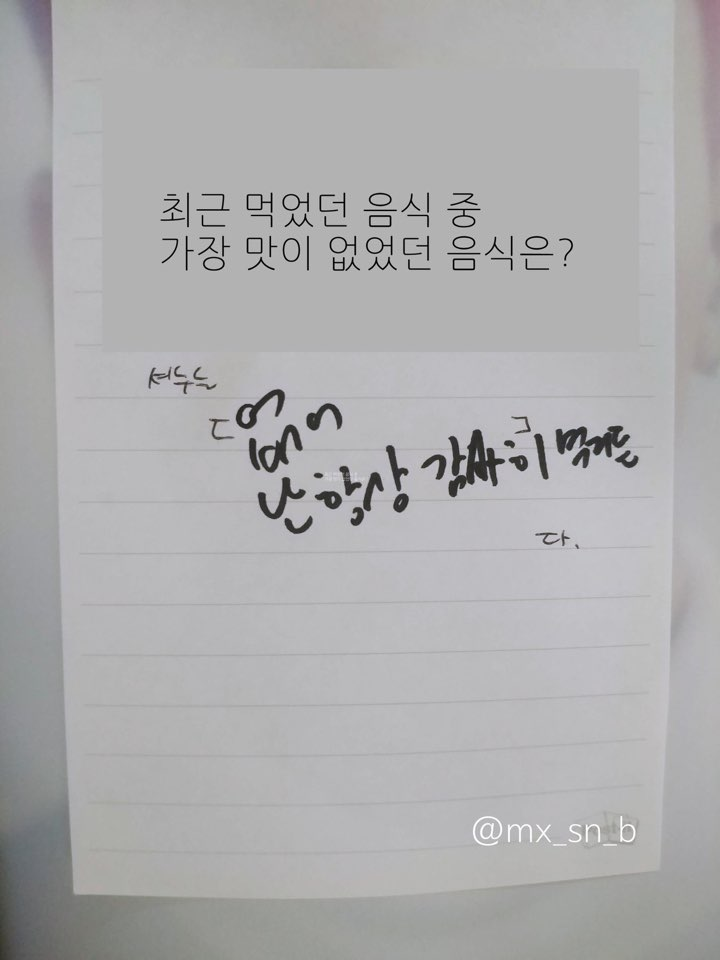 최근 먹었던 음식 중
가장 맛이 없었던 음식은?
셔누는
없어
난 항상 감사히 먹거든
다.
@mx_sn_b